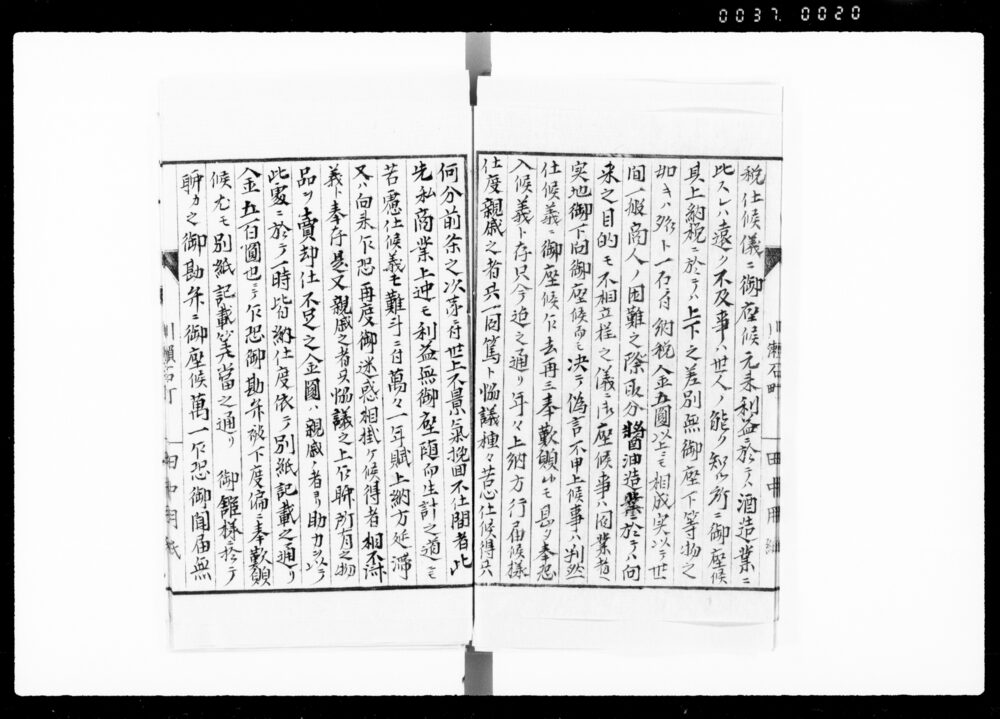 0037 0020
税仕候儀ニ御座候元来利益ニ於テハ酒造業ニ
此スレハ遠ク不及事ハ世人ノ能ク知ル所ニ御座候
其上納税ニ於テハ上下之差別無御座下等物之
如キハ殆ト一石ニ付納税金五圓以上ニモ相成実以テ世
間一般商人ノ困難之際取分醤油造業ニ於テハ向
来之目的モ不相立程之儀ニ御座候事ハ同業者之
実地御下問御座候而モ決テ偽言不申上候事ハ判然
仕候義ニ御座候乍去再三奉歎願候モ甚タ奉恐
入候義ト存只今迠之通リ年々上納方行届候様
仕度親戚之者共一同篤ト協議種々苦心仕候得共
何分前条之次第ニ付世上不景氣挽回不仕間者此
先私商業上迚モ利益無御座随而生計之道ニモ
苦慮仕候義モ難斗ニ付萬々一年賦上納方延滞
又ハ向来乍恐再度御迷惑相掛ケ候得者相不済
義ト奉存是又親戚之者共協議之上乍聊所有之物
品ヲ賣却仕不足之金圓ハ親戚ノ者ヨリ助力ヲ以テ
此處ニ於テ一時皆納仕度依テ別紙記載之通リ
金五百圓也ニテ乍恐御勘弁被下度偏ニ奉歎願
候尤モ別紙記載筭當之通リ 御舘様ニ於テ
聊カ之御勘弁ニ御座候萬一乍恐御聞届無
川瀬石町
田中用紙